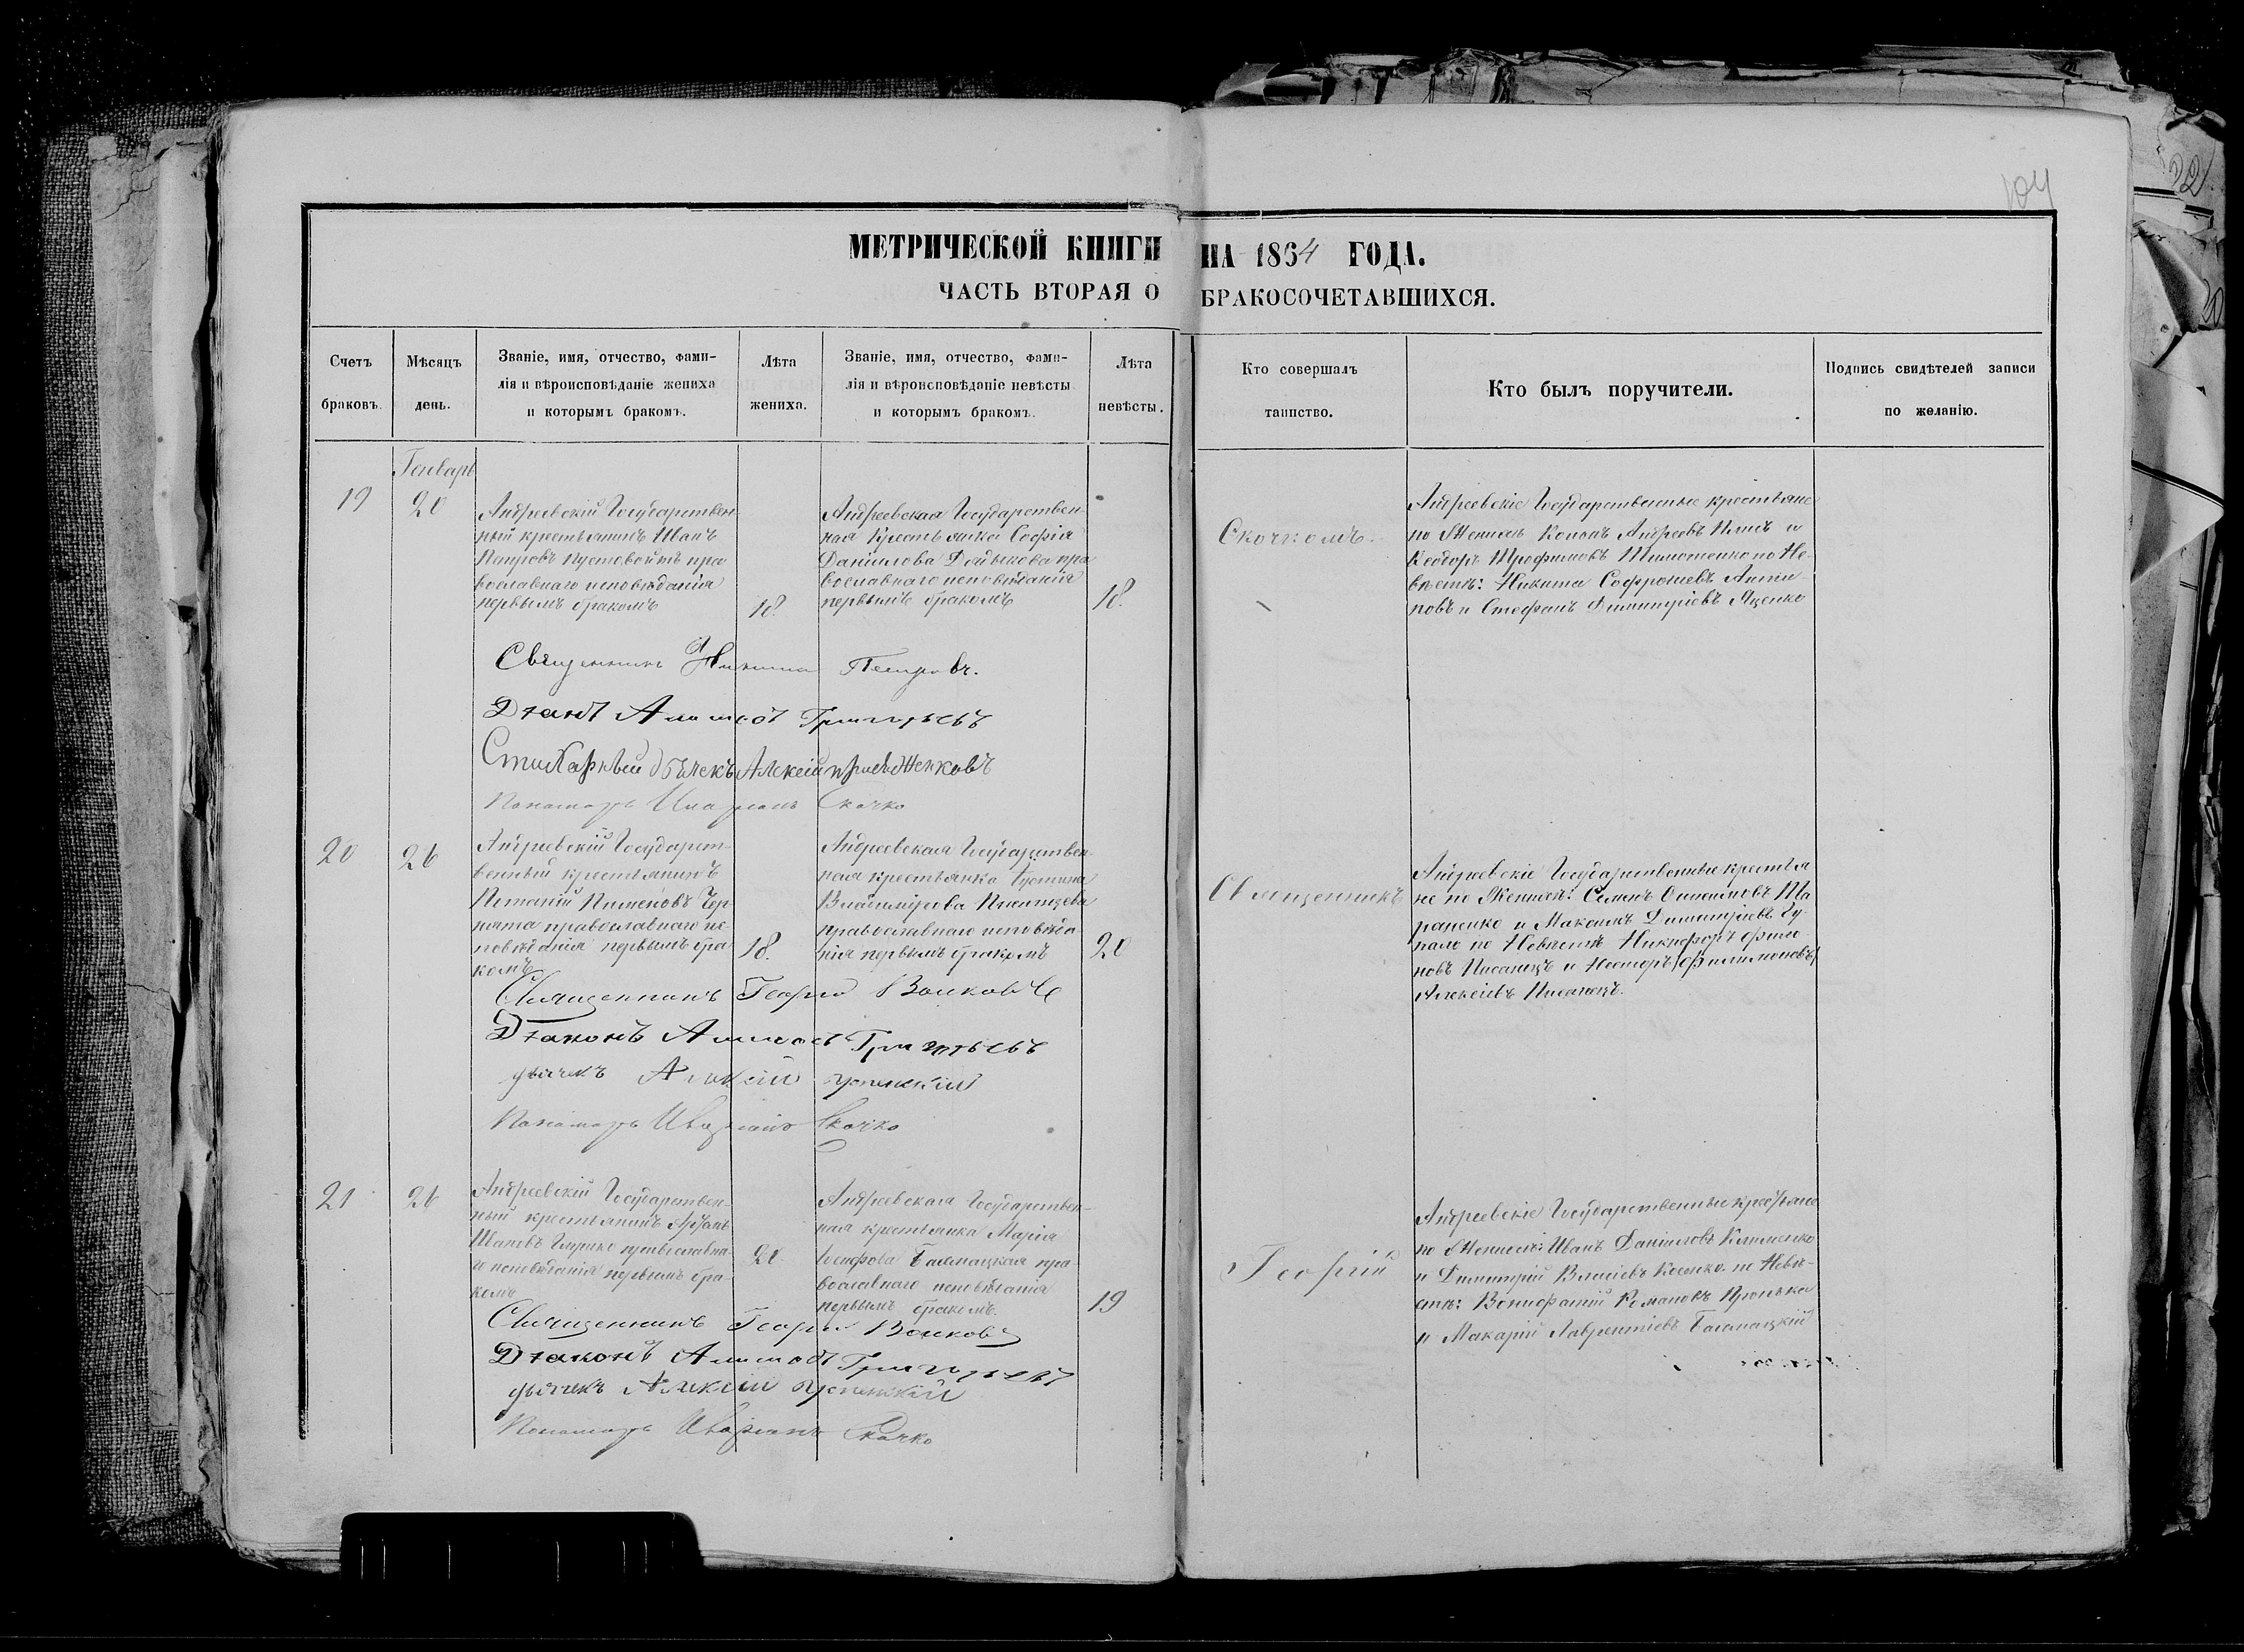 104
МЕТРИЧЕСКОЙ КНИГИ НА 1864 ГОДА.
ЧАСТЬ ВТОРАЯ О БРАКОСОЧЕТАВШИХСЯ.
Счетъ браковъ.
Мѣсяцъ день.
Званіе, имя, отчество, фами-
лія и вѣроисповѣданіе жениха
и которымъ бракомъ.
Лѣта жениха.
Званіе, имя, отчество, фами-
лія и вѣроисповѣданіе невѣсты
и которымъ бракомъ.
Лѣта невѣсты.
Кто совершалъ
таинство.
Кто былъ поручители.
Подпись свидѣтелей записи
по желанію.
Генварь
19
20
Андреевскій Государствен
ный крестьянинъ Иванъ
Петровъ Пустовойтъ пра
вославнаго исповѣданія
первымъ бракомъ
18.
Андреевская Государствен-
ная крестьянка Софія
Даніилова пра
вославнаго исповѣданія
первымъ бракомъ
18.
Андреевскіе Государственные крестьяне
по Женихѣ Кононъ Андреевъ и
Ѳеодоръ Трофимовъ Тимошенко по Не-
вѣстѣ: Никита Софроніевъ Анти-
повъ и Стефанъ Димитріевъ Яценко
Священникъ Никита Петровъ.
Діаконъ Григорьевъ
Стихарный дьячекъ Алексій
Пономарь Скачко
20
26
Андреевскій Государст-
венный крестьянинъ
Пименовъ Чер-
православнаго ис-
повѣданія первымъ бра
комъ
18.
Андреевская Государствен-
ная крестьянка Іустина
Владимірова
православнаго исповѣда-
нія первымъ бракомъ
20
Священникъ
Андреевскіе Государственные крестья
не по Женихѣ: Онисимовъ Та
раненко и Максимъ Димитріевъ
по Невѣстѣ Никифоръ
новъ Писанецъ и Несторъ /Филимоновъ/
Алексіевъ Писанецъ.
Священникъ Георгій Волковъ
Діаконъ Григорьевъ
дьячекъ Алексій
Пономарь Скачко
21
26
Андреевскій Государствен-
ный крестьянинъ
Ивановъ православна-
го исповѣданія первымъ бра-
комъ
20
Андреевская Государствен-
ная крестьянка Марія
Іосифова Балмацкая пра-
вославнаго исповѣданія
первымъ бракомъ.
19
Георгій
Андреевскіе Государственные крестьяне
по Женихѣ: Иванъ Даніиловъ Клименко
и Димитрій Власіевъ Косенко по Невѣ-
стѣ: Вонифатій Романовъ
и Макарій Лаврентіевъ Балмацкій
Священникъ Георгій Волковъ
Діаконъ Григорьевъ
дьячекъ Алексій
Пономарь Скачко